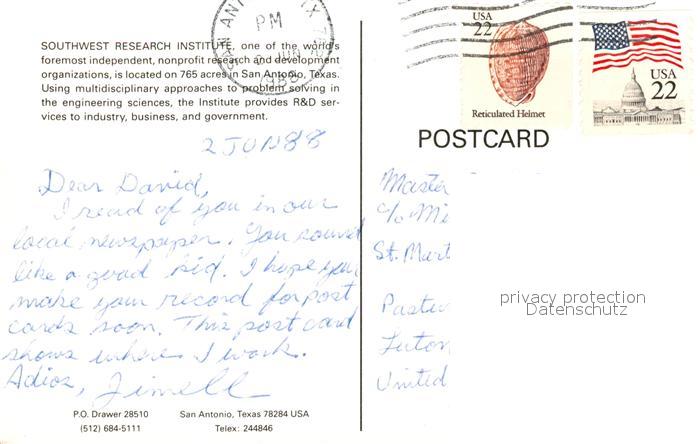 SOUTHWEST RESEARCH INSTITUTE, one of the world's
foremost independent, nonprofit research and development
organizations, is located on 765 acres in San Antonio, Texas.
Using multidisciplinary approaches to problem solving in
the engineering sciences, the Institute provides R&D ser-
vices to industry, business, and government.
SAN ANTONIO TX
PM
JUN
2 JUN 88
Dear David,
I read of you in our
local newspaper. You sound
like a good kid. I hope you
make your record for post
cards soon. This post card
shows where I work.
Adios,
P.O. Drawer 28510
(512) 684-5111
San Antonio, Texas 78284 USA
Telex: 244846
USA
22
Reticulated Helmet
USA
22
POSTCARD
Master
c/o Mi
St. Mart
United
privacy protection
Datenschutz